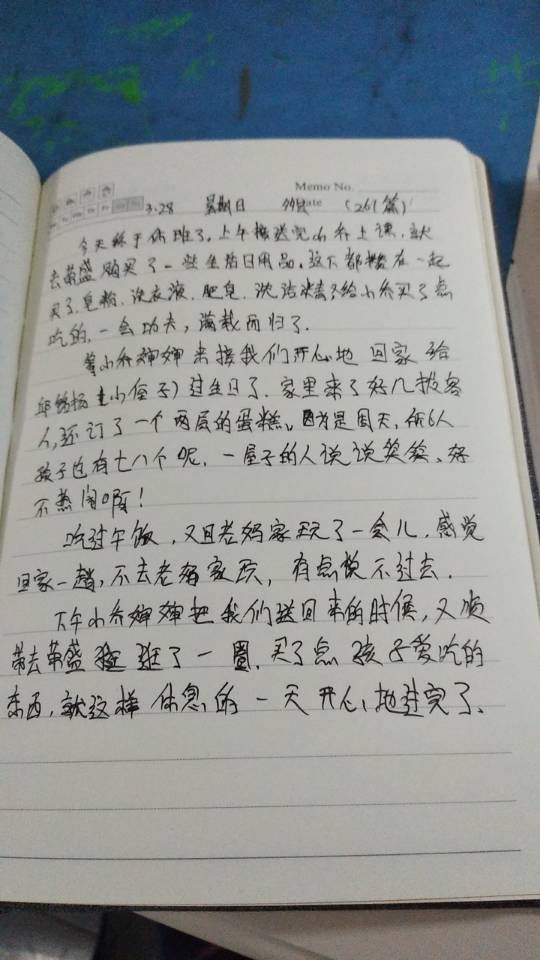 Memo No.
3.28 星期日 ate (261篇)
今天终于休班了,上午接送完小乔上课,就
去荣盛购买了一些生活日用品,这下都攒在一起
买了,皂粉、洗衣液、肥皂、洗洁精,给小乔买了点
吃的,一会功夫,满载而归了.
小乔婶婶来接我们开心地回家给
邱 扬(小侄子)过生日了.家里来了好几拨客
人,还订了一个两层的蛋糕、因为是周天,所以
孩子也有七八个呢,一屋子的人说说笑笑、好
不热闹啊!
吃过午饭,又回老妈家玩了一会儿,感觉
回家一趟,不去老妈家玩,有点说不过去.
下午小乔婶婶把我们送回来的时候,又顺
带去荣盛逛了一圈,买了点孩子爱吃的
东西,就这样休息的一天开心地过完了、